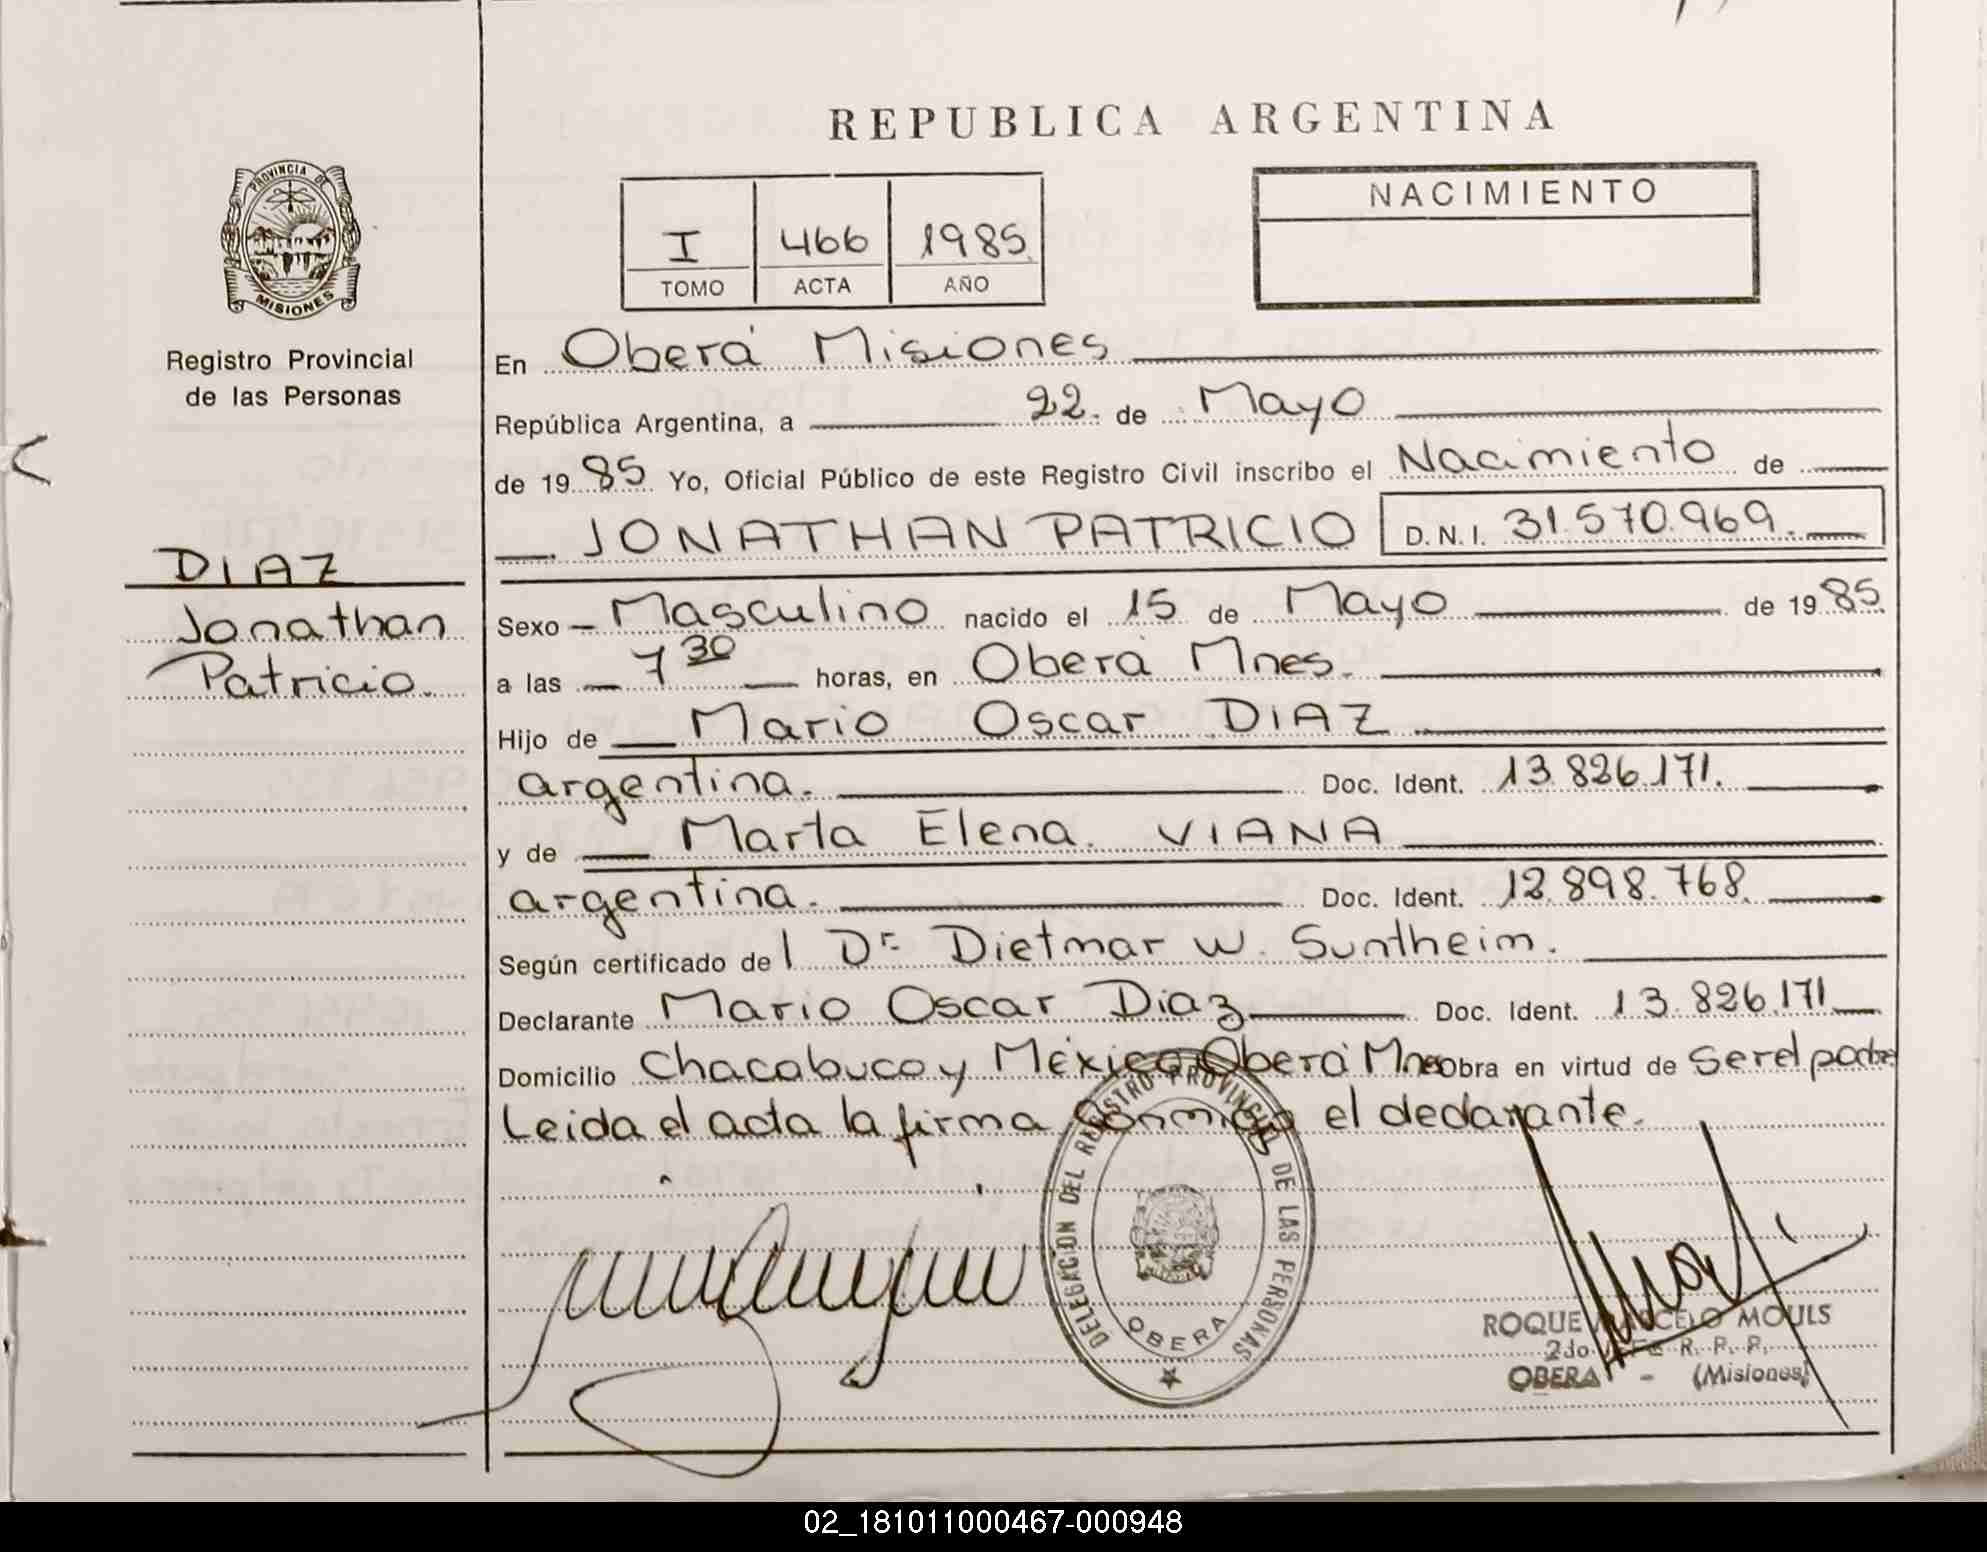 REPUBLICA ARGENTINA
PROVINCIA DE
MISIONES
Registro Provincial
de las Personas
I 466 1985
TOMO ACTA AÑO
NACIMIENTO
DIAZ
Jonathan
Patricio.
En Oberá Misiones
República Argentina, a 22 de Mayo
de 1985 Yo, Oficial Público de este Registro Civil inscribo el Nacimiento de
JONATHAN PATRICIO D.N.I. 31.570.969.
Sexo Masculino nacido el 15 de Mayo de 1985
a las 7 30 horas, en Oberá Mnes.
Hijo de Mario Oscar DIAZ
argentina. Doc. Ident. 13.826.171.
y de Marta Elena VIANA
argentina. Doc. Ident. 12.898.768.
Según certificado del Dr. Dietmar W. Suntheim.
Declarante Mario Oscar Diaz Doc. Ident. 13.826.171
Domicilio Chacabuco y México Oberá Mnes Obra en virtud de ser el padre
Leida el acta la firma conmigo el declarante.
DELEGACION DEL REGISTRO PROVINCIAL DE LAS PERSONAS
OBERA
ROQUE MARCELO MOULS
2do R. P. P.
OBERA - (Misiones)
02_181011000467-000948